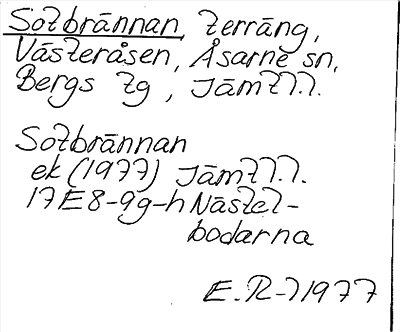 Sotbrännan, terräng,
Västeråsen, Åsarne sn,
Bergs tg, Jämtl.l.
Sotbrännan
ek (1977) Jämtl.l.
17E8-9g-h Nästel-
bodarna
E.R-l 1977